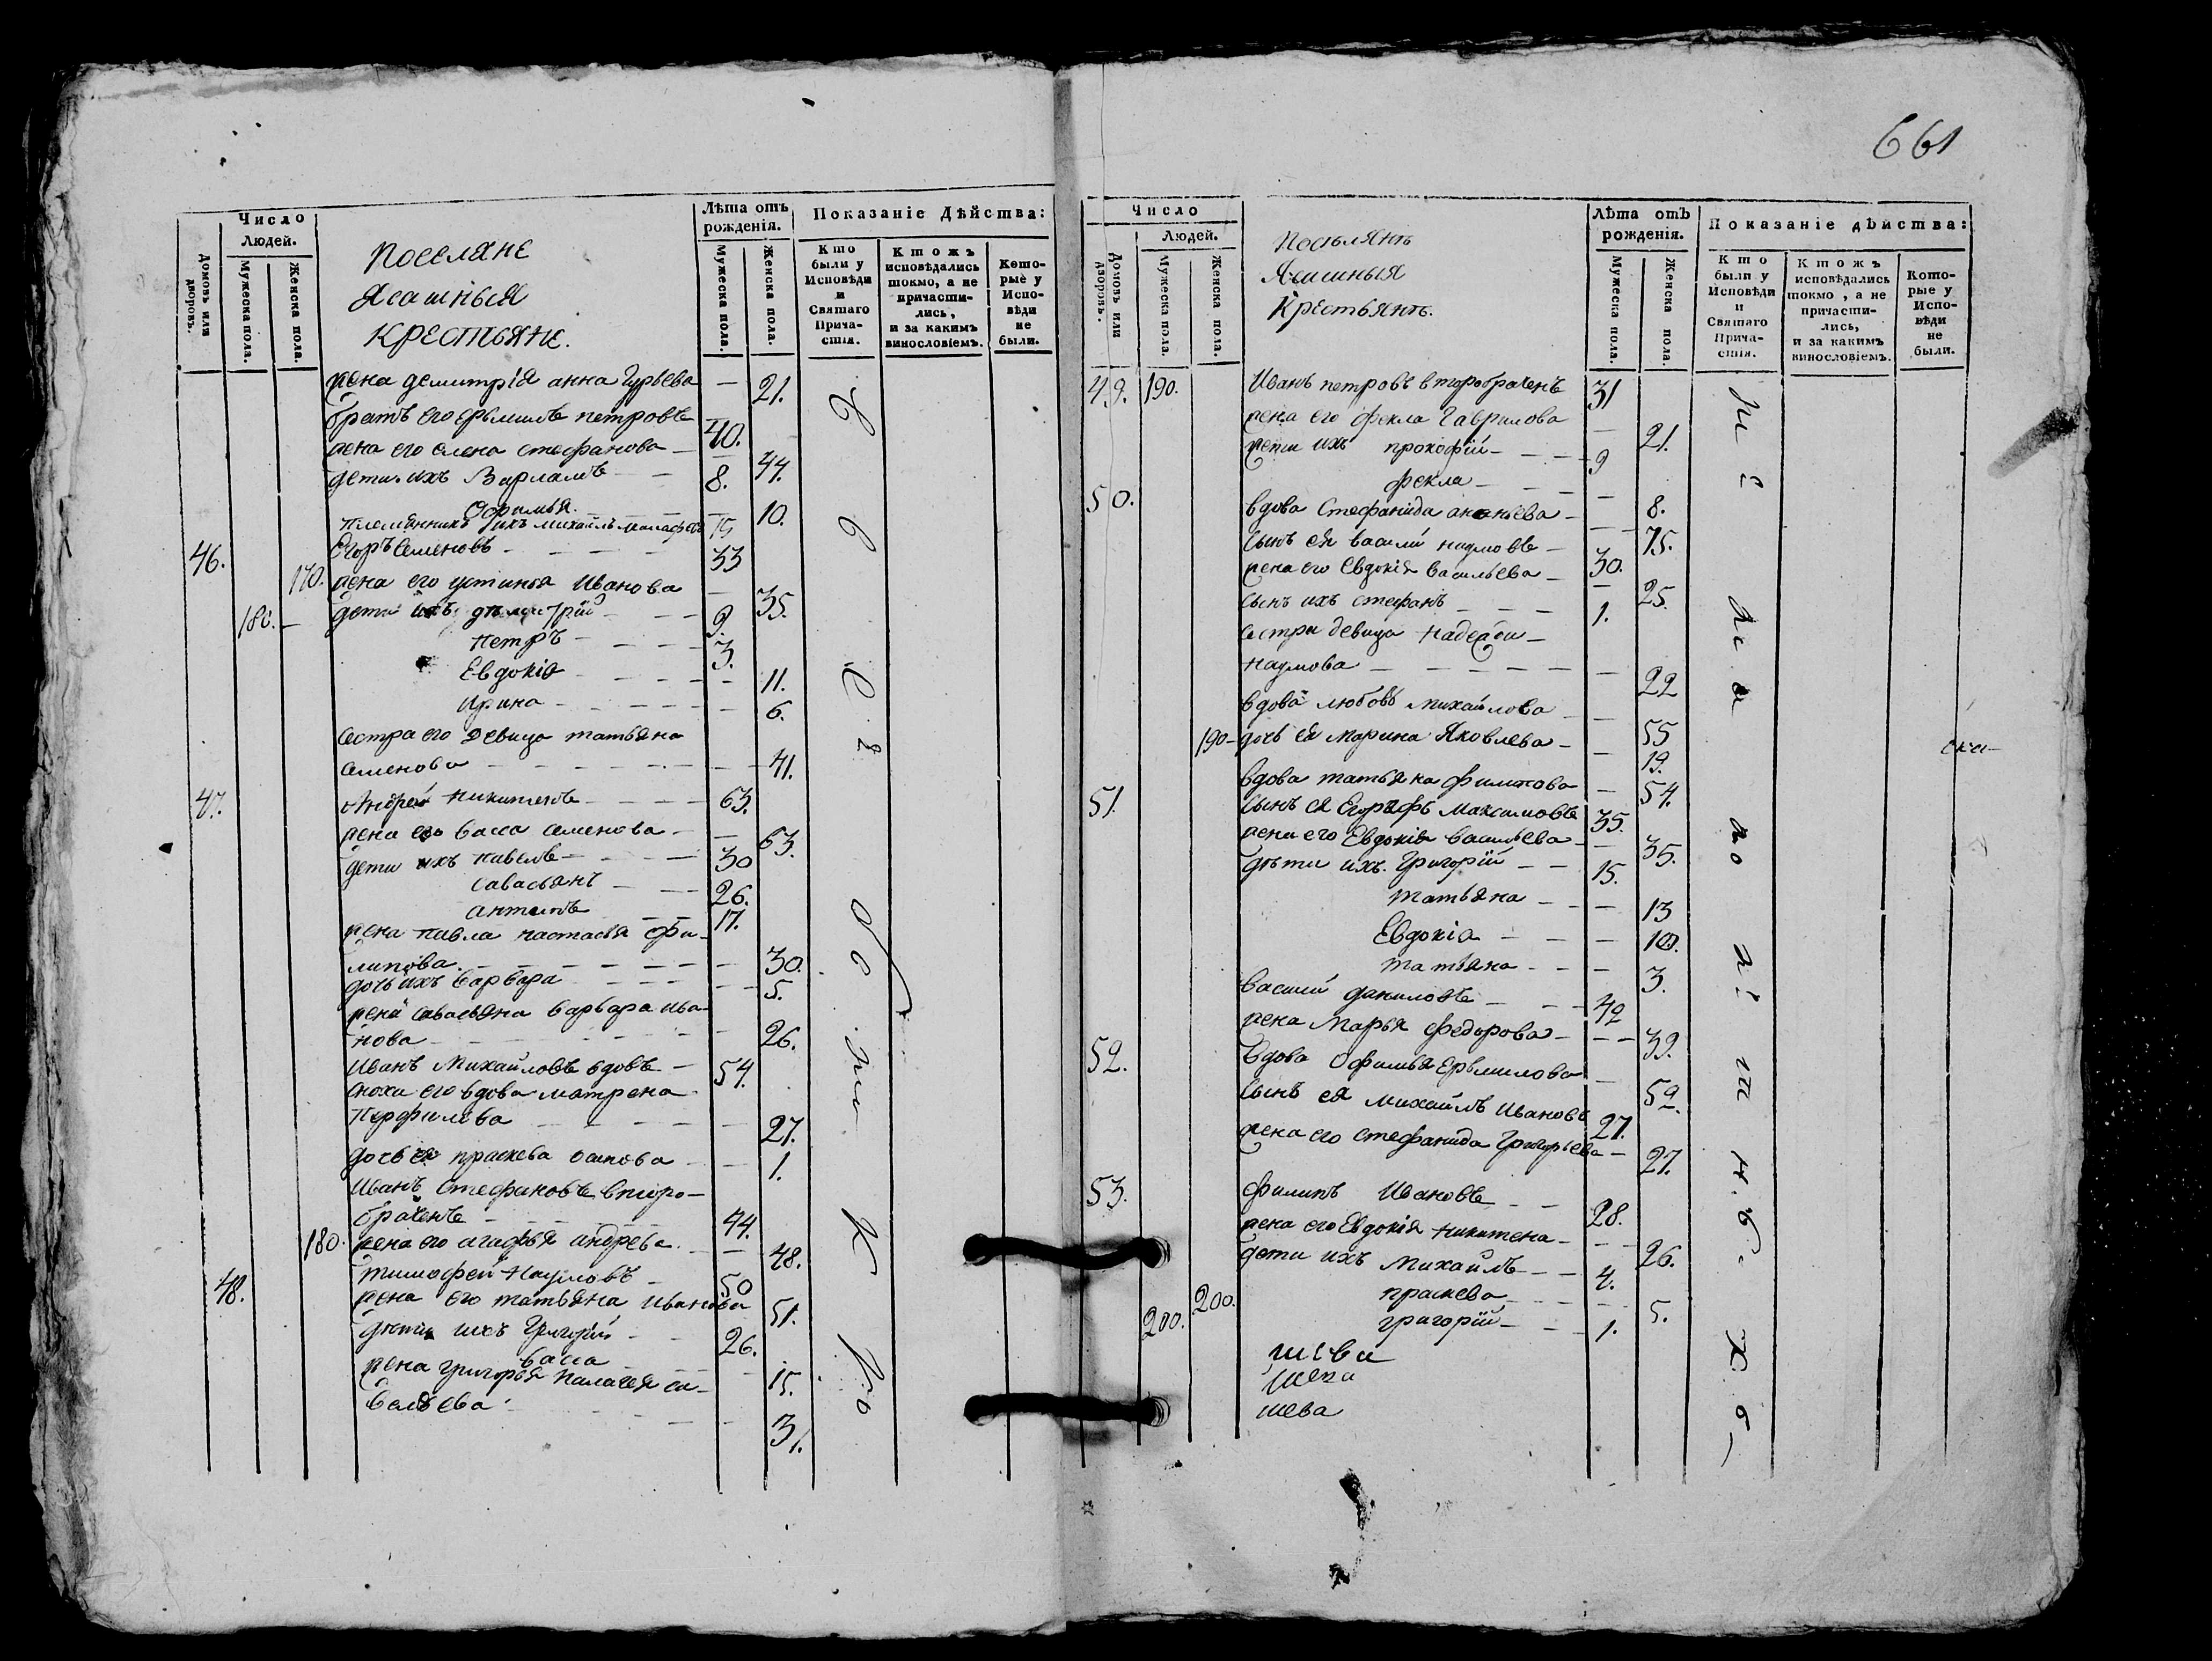 661
Число
Людей.
Домовъ или дворовъ.
Мужеска пола.
Женска пола.
Поселяне
Ясашныя
Крестьяне.
Лѣта отъ рожденія.
Мужеска пола.
Женска пола.
Показаніе Дѣйства:
Кто были у Исповѣди и Святаго Причастія.
Ктожъ исповѣдались токмо, а не причастились, и за какимъ винословіемъ.
Которые у Исповѣди не были.
жена демитрія анна Гурьева — 21.
братъ его ерьмилъ петровъ 40.
жена его елена стефанова — 44.
дети ихъ Варламъ — 8.
Офимья — 10.
племянникъ ихъ михаилъ 15
46. Егоръ Семеновъ — 33
170. жена его устинья Иванова — 35.
180. дети ихъ димитрій — 9.
Петръ — 3.
Евдокія — 11.
Ирина — 6.
сестра его девица татьяна
семенова — 41.
47. Андрей Никитинъ — 63.
жена его васса семенова — 63.
дети ихъ павелъ — 30
савасьянъ — 26.
антипъ — 17.
жена павла настасья фи-
липова — 30.
дочь ихъ варвара — 5.
жена савасьяна варвара ива-
нова — 26.
Иванъ Михайловъ вдовъ — 54.
сноха его вдова матрена
Перфилева — 27.
дочь ея праскева осипова — 1.
Иванъ Стефановъ второ-
браченъ — 44.
180. жена его агафья андрева — 48.
48. тимофей Наумовъ — 50
жена его татьяна иванова 51.
дети ихъ Григорій — 26.
васса — 15.
жена григорья палагея са-
вельева — 31.
Число
Людей.
Домовъ или дворовъ.
Мужеска пола.
Женска пола.
Посѣлянѣ
Ясашныя
Крестьянѣ.
Лѣта отъ рожденія.
Мужеска пола.
Женска пола.
Показаніе дѣйства:
Кто были у Исповѣди и Святаго Причастія.
Ктожъ исповѣдались токмо, а не причастились, и за какимъ винословіемъ.
Которые у Исповѣди не были.
49. 190. Иванъ петровъ второбраченъ 31
жена его фекла Гаврилова — 21.
дети ихъ прокофій — 9
фекла — 8.
50. вдова Стефанида ананьева — 75.
сынъ ея василій наумовъ — 30.
жена его Евдокія васильева — 25.
сынъ ихъ стефанъ — 1.
сестра девица
наумова — 22
вдова любовь михайлова — 55
190 — дочь ея марина Яковлева — 19.
вдова татьяна филипова — 54.
51. сынъ ея Егорафъ максимовъ 35.
жена его Евдокія васильева — 35.
дѣти ихъ Григорій — 15.
татьяна — 13
Евдокія — 10.
татьяна — 3.
василій даниловъ — 42
жена Марья федорова — 39.
52. вдова Офимья ерьмилова — 59.
сынъ ея михаилъ Ивановъ 27.
жена его стефанида Григорьева — 27.
53. филипъ Ивановъ — 28.
жена его Евдокія никитена — 26.
дети ихъ Михаилъ — 4.
200. праскева — 5.
200. григорій — 1.
шева